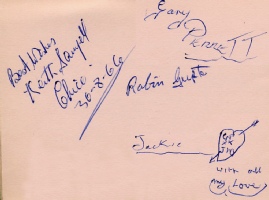 Best Wishes
Keith
Chico!
30-8-66
Gary
PERRETT
Robin
Jackie
with all
my Love